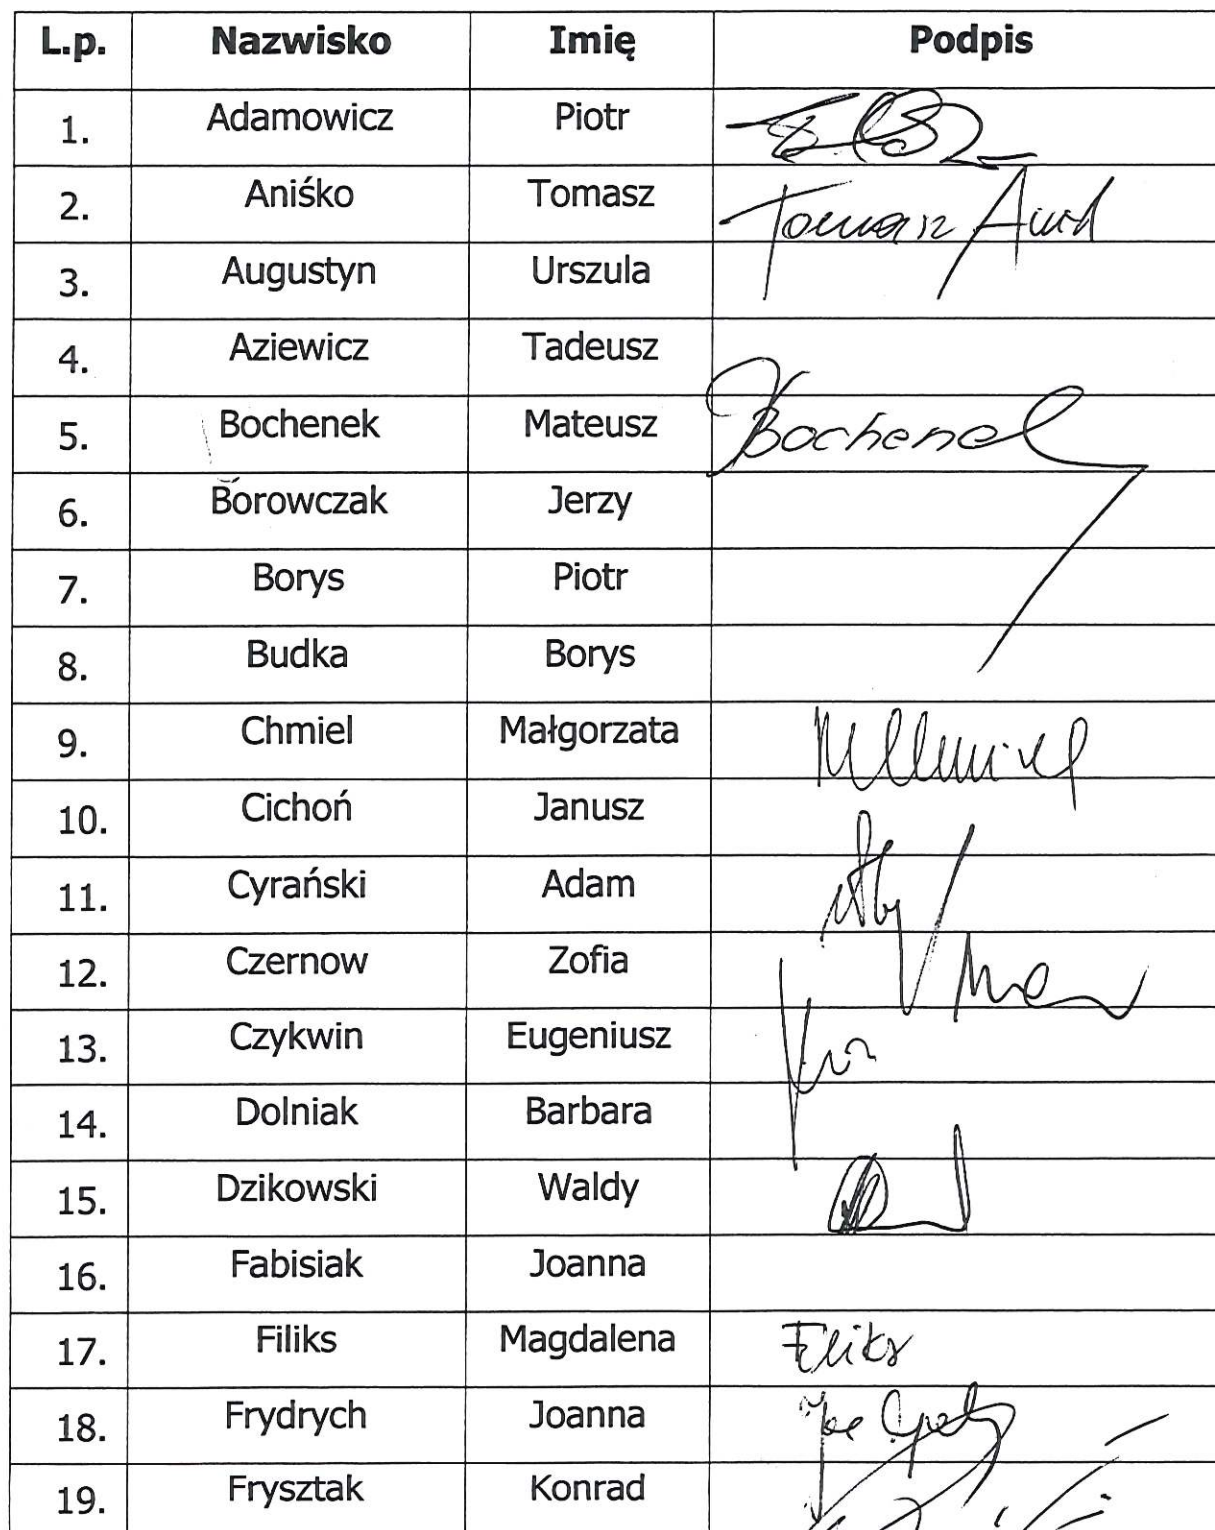 L.p. Nazwisko Imię Podpis
1. Adamowicz Piotr
2. Aniśko Tomasz Tomasz
3. Augustyn Urszula
4. Aziewicz Tadeusz
5. Bochenek Mateusz Bochenek
6. Borowczak Jerzy
7. Borys Piotr
8. Budka Borys
9. Chmiel Małgorzata
10. Cichoń Janusz
11. Cyrański Adam
12. Czernow Zofia
13. Czykwin Eugeniusz
14. Dolniak Barbara
15. Dzikowski Waldy
16. Fabisiak Joanna
17. Filiks Magdalena Filiks
18. Frydrych Joanna
19. Frysztak Konrad